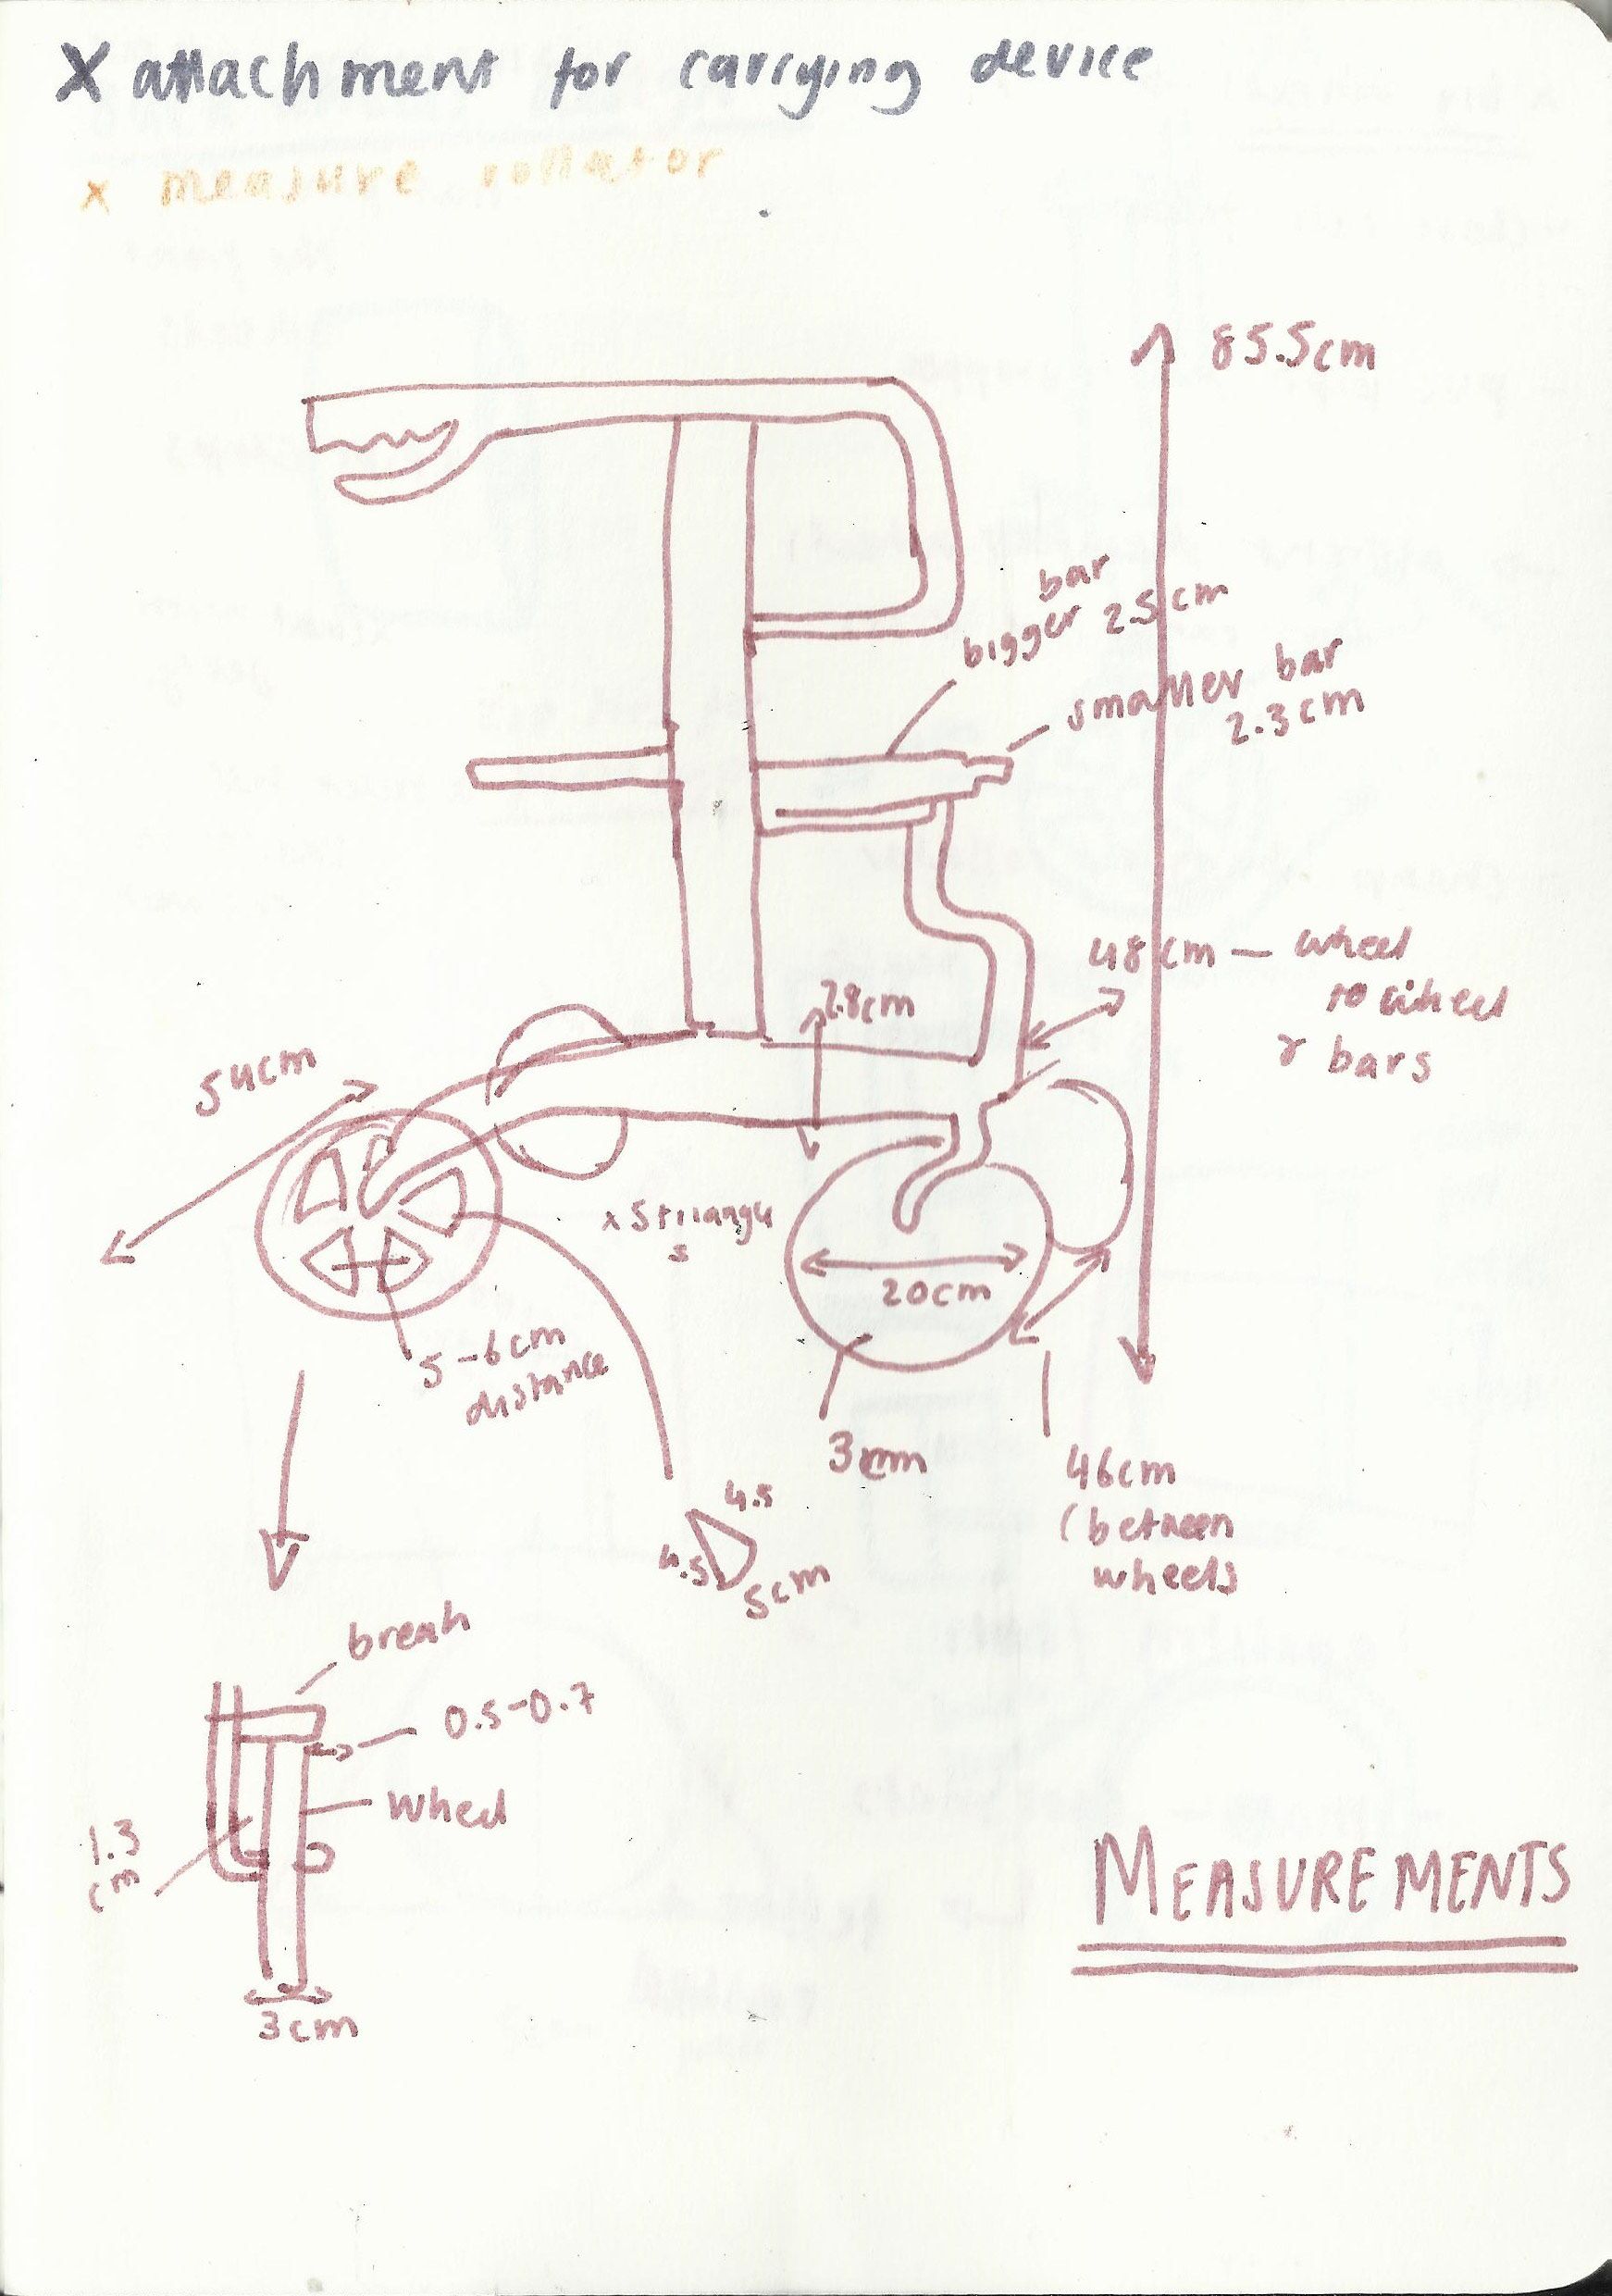 X attachment for carrying device
x measure rollator
85.5cm
bar
bigger 2.5cm
smaller bar
2.3cm
48cm — wheel
to wheel
r bars
2.8cm
54cm
x 5 triangle
s
20cm
5-6cm
distance
3cm
46cm
(between
wheels
4.5
4.5
5cm
break
0.5-0.7
wheel
1.3
cm
3cm
MEASUREMENTS